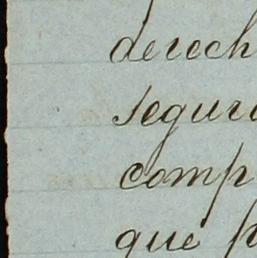 derech
segura
comp
que p